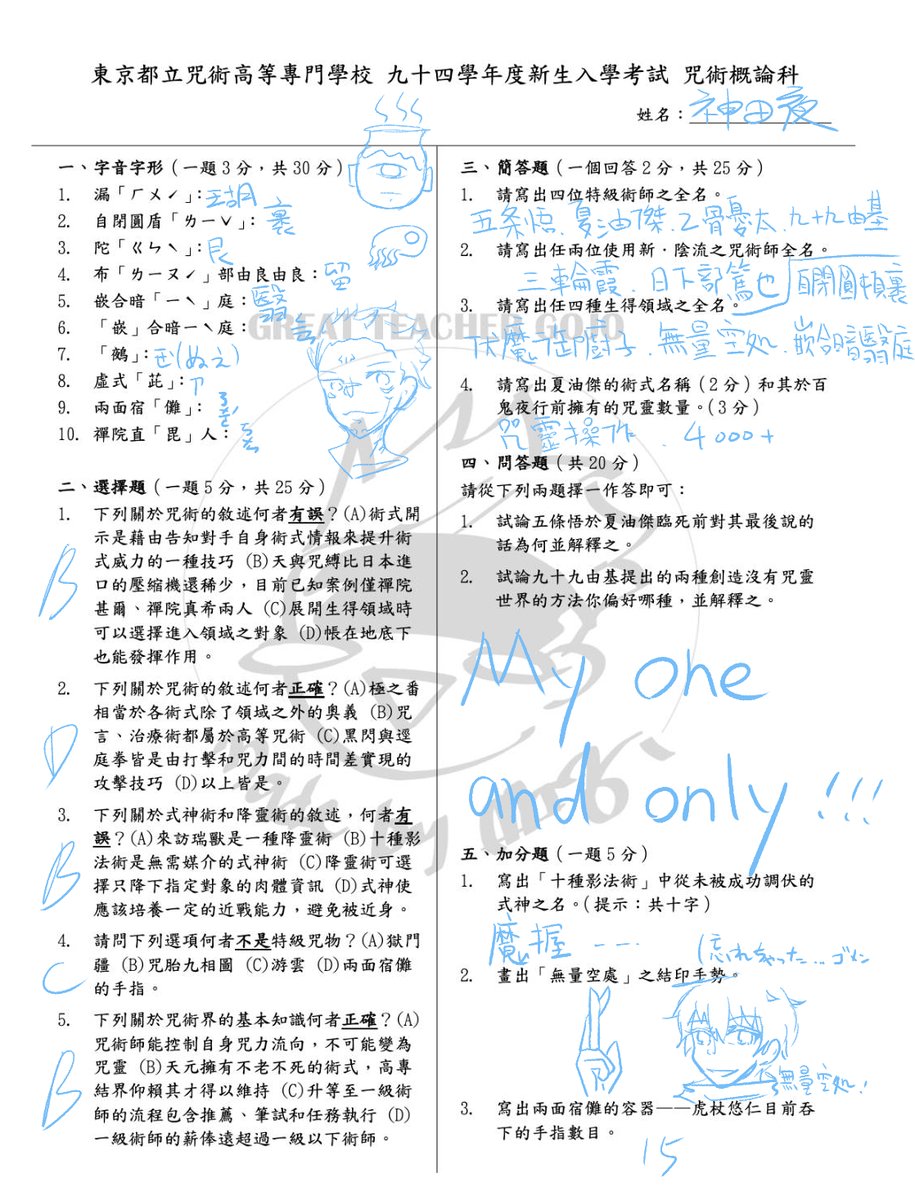 東京都立咒術高等專門學校 九十四學年度新生入學考試 咒術概論科
姓名：神田夜
一、字音字形（一題3分，共30分）
1. 漏「ㄏㄨˊ」：瑚
2. 自閉圓盾「ㄌㄧˇ」：裹
3. 陀「ㄍㄣˋ」：艮
4. 布「ㄌㄧㄡˊ」部由良由良：留
5. 嵌合暗「ㄧˋ」庭：翳
6. 「嵌」合暗ㄧˋ庭：
7. 「鵺」：(ぬえ)
8. 虛式「茈」：ㄗ
9. 兩面宿「儺」：
10. 禪院直「毘」人：
二、選擇題（一題5分，共25分）
B
1. 下列關於咒術的敘述何者有誤？(A)術式開
示是藉由告知對手自身術式情報來提升術
式威力的一種技巧 (B)天與咒縛比日本進
口的壓縮機還稀少，目前已知案例僅禪院
甚爾、禪院真希兩人 (C)展開生得領域時
可以選擇進入領域之對象 (D)帳在地底下
也能發揮作用。
D
2. 下列關於咒術的敘述何者正確？(A)極之番
相當於各術式除了領域之外的奧義 (B)咒
言、治療術都屬於高等咒術 (C)黑閃與逕
庭拳皆是由打擊和咒力間的時間差實現的
攻擊技巧 (D)以上皆是。
B
3. 下列關於式神術和降靈術的敘述，何者有
誤？(A)來訪瑞獸是一種降靈術 (B)十種影
法術是無需媒介的式神術 (C)降靈術可選
擇只降下指定對象的肉體資訊 (D)式神使
應該培養一定的近戰能力，避免被近身。
C
4. 請問下列選項何者不是特級咒物？(A)獄門
疆 (B)咒胎九相圖 (C)游雲 (D)兩面宿儺
的手指。
B
5. 下列關於咒術界的基本知識何者正確？(A)
咒術師能控制自身咒力流向，不可能變為
咒靈 (B)天元擁有不老不死的術式，高專
結界仰賴其才得以維持 (C)升等至一級術
師的流程包含推薦、筆試和任務執行 (D)
一級術師的薪俸遠超過一級以下術師。
三、簡答題（一個回答2分，共25分）
1. 請寫出四位特級術師之全名。
五条悟、夏油傑、乙骨憂太、九十九由基
2. 請寫出任兩位使用新．陰流之咒術師全名。
三輪霞、日下部篤也
自閉圓頓裹
3. 請寫出任四種生得領域之全名。
伏魔御廚子、無量空処、嵌合暗翳庭
4. 請寫出夏油傑的術式名稱（2分）和其於百
鬼夜行前擁有的咒靈數量。（3分）
咒靈操作、4000+
四、問答題（共20分）
請從下列兩題擇一作答即可：
1. 試論五條悟於夏油傑臨死前對其最後說的
話為何並解釋之。
2. 試論九十九由基提出的兩種創造沒有咒靈
世界的方法你偏好哪種，並解釋之。
My one
and only!!!
五、加分題（一題5分）
1. 寫出「十種影法術」中從未被成功調伏的
式神之名。（提示：共十字）
魔握---
(忘れちゃった...ゴメン
2. 畫出「無量空處」之結印手勢。
無量空処!
3. 寫出兩面宿儺的容器——虎杖悠仁目前吞
下的手指數目。
15
GREAT TEACHER GOJO